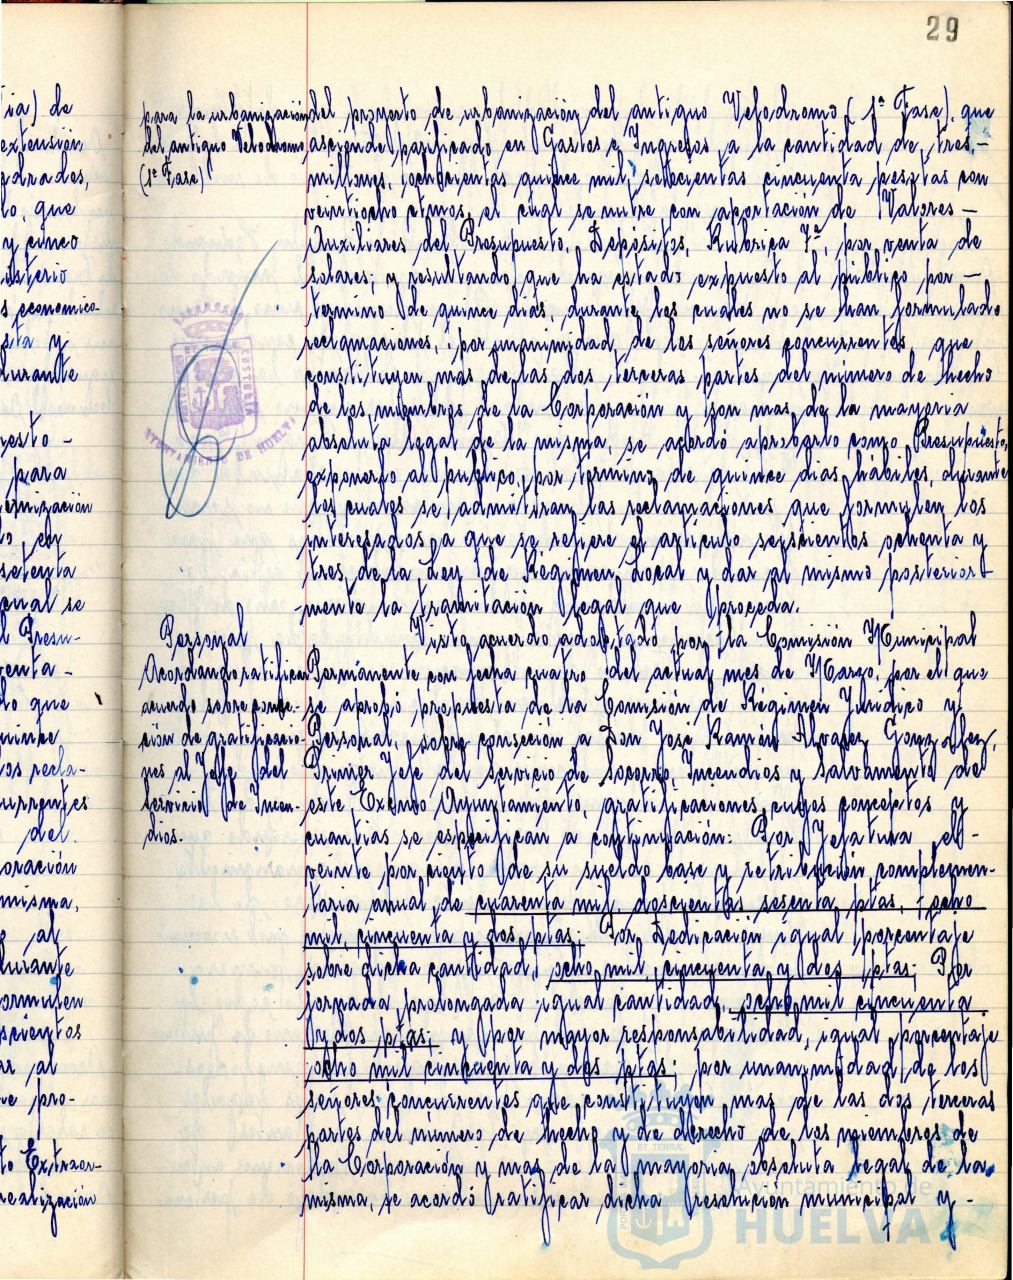 29
ia) de
extensión
adrados,
lo, que
y cinco
isterio
s económico-
sta y
durante
esto -
para
setenta
cual se
l Presu-
venta -
do que
quince
os recla-
currentes
del
oración
misma,
al
durante
ormulen
scientos
ar al
ve pro-
to Extraor-
realización
para la urbanización
del antiguo Velodromo
(1ª Fase)
del proyecto de urbanización del antiguo Velodromo (1ª Fase) que
asciende parificado en Gastos e Ingresos, a la cantidad de tres -
millones, ochocientas quince mil, setecientas cincuenta pesetas con
veintiocho ctmos, el cual se nutre con aportación de Valores -
Auxiliares del Presupuesto. Depósitos, Rubrica 7ª, por venta de
solares; y resultando que ha estado expuesto al público por -
termino de quince dias, durante los cuales no se han formulado
reclamaciones, por unanimidad de los señores concurrentes que
constituyen mas de las dos terceras partes del número de hecho
de los miembros de la Corporación y son mas de la mayoria
absoluta legal de la misma, se acordó aprobarlo como Presupuesto,
exponerlo al público por termino de quince dias hábiles, durante
los cuales se admitiran las reclamaciones que formulen los
interesados a que se refiere el artículo seiscientos ochenta y
tres de la Ley de Régimen Local y dar al mismo posterior-
mente la tramitación legal que proceda.
Personal
Acordando ratificar
acuerdo sobre conce-
ción de gratificacio-
nes al Jefe del
Servicio de Incen-
dios.
Visto acuerdo adoptado por la Comisión Municipal
Permanente con fecha cuatro del actual mes de Marzo, por el que
se aprobó propuesta de la Comisión de Régimen Juridico y
Personal, sobre conseción a Don José Ramón Alvarez Gonzalez,
Primer Jefe del Servicio de Socorro, Incendios y Salvamento de
este Excmo Ayuntamiento, gratificaciones, cuyos conceptos y
cuantias se especifican a continuación: Por Jefatura el -
veinte por ciento de su sueldo base y retribución complemen-
taria anual, de cuarenta mil, doscientas sesenta ptas, ocho
mil, cincuenta y dos ptas; Por Dedicación igual porcentaje
sobre dicha cantidad, ocho mil, cincuenta y dos ptas; Por
jornada prolongada igual cantidad, ocho mil cincuenta
y dos ptas; y por mayor responsabilidad, igual porcentaje
ocho mil cincuenta y dos ptas; por unanimidad de los
señores concurrentes que constituyen mas de las dos terceras
partes del número de hecho y de derecho de los miembros de
la Corporación y mas de la mayoria absoluta legal de la
misma, se acordó ratificar dicha resolución municipal y -
AYUNTAMIENTO DE HUELVA
Ayuntamiento de
HUELVA